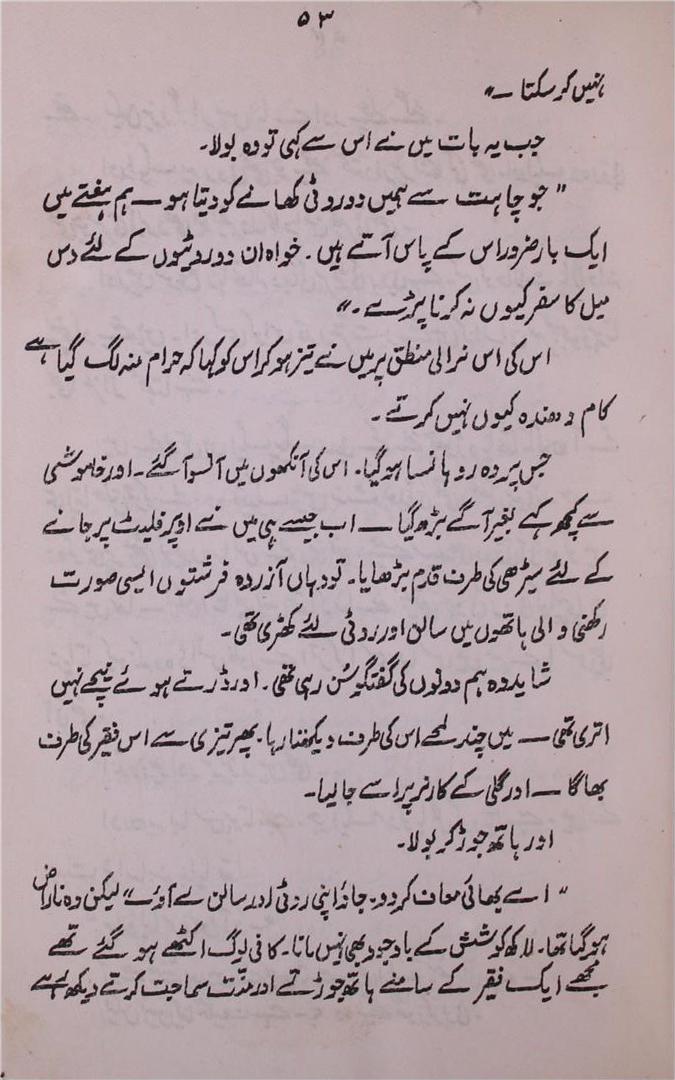 ۵۳
نہیں کر سکتا ــ"
جب یہ بات میں نے اس سے کہی تو وہ بولا۔
" جو چاہت سے ہمیں دو روٹی کھانے کو دیتا ہو ــ ہم ہفتے میں
ایک بار ضرور اس کے پاس آتے ہیں۔ خواہ ان دو روٹیوں کے لئے دس
میل کا سفر کیوں نہ کرنا پڑے ۔"
اس کی اس نرالی منطق پر میں نے تیز ہو کر اس کو کہا کہ حرام منہ لگ گیا ہے
کام و دھندہ کیوں نہیں کرتے ۔
جس پر وہ روہانسا ہو گیا۔ اس کی آنکھوں میں آنسو آ گئے ۔ اور خاموشی
سے کچھ کہے بغیر آگے بڑھ گیا ــ اب جیسے ہی میں نے اوپر فلیٹ پر جانے
کے لئے سیڑھی کی طرف قدم بڑھایا۔ تو وہاں آزردہ فرشتوں ایسی صورت
رکھنی والی ہاتھوں میں سالن اور روٹی لئے کھڑی تھی۔
شاید وہ ہم دونوں کی گفتگو سُن رہی تھی ۔ اور ڈرتے ہوئے نیچے نہیں
اتری تھی ــ میں چند لمحے اس کی طرف دیکھتا رہا۔ پھر تیزی سے اس فقیر کی طرف
بھاگا ــ اور گلی کے کارنر پر اسے جا لیا۔
اور ہاتھ جوڑ کر بولا۔
" اے بھائی معاف کر دو۔ جاؤ اپنی روٹی اور سالن لے آؤ" لیکن وہ ناراض
ہو گیا تھا۔ لاکھ کوشش کے باوجود بھی نہیں مانا۔ کافی لوگ اکٹھے ہو گئے تھے
مجھے ایک فقیر کے سامنے ہاتھ جوڑتے اور منّت سماجت کرتے دیکھ رہے